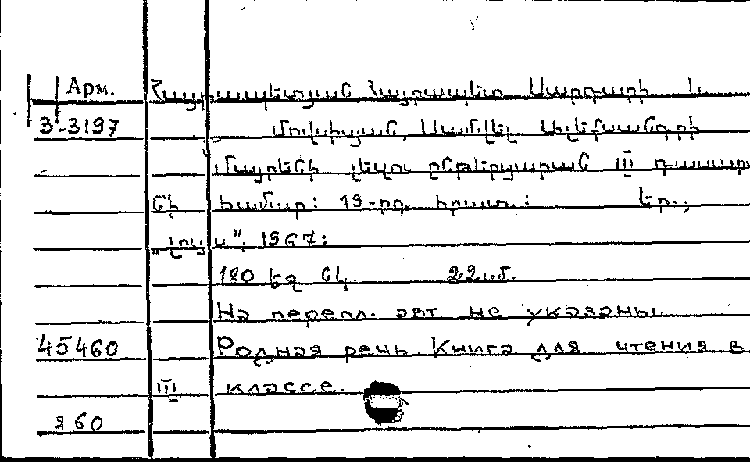 Арм. Հայրապետյան Հայրապետ Սարգսի և
3-3197 Մովսիսյան, Սամվել Ալեքսանդրի
Մայրենի լեզու ընթերցարան III դասար
նի համար: 19-րդ. հրատ.: Եր.,
„Լույս", 1967:
180 էջ նկ 22 ս.մ.
На перепл. авт не указаны
45460 Родная речь. Книга для чтения в
III классе.
я 60